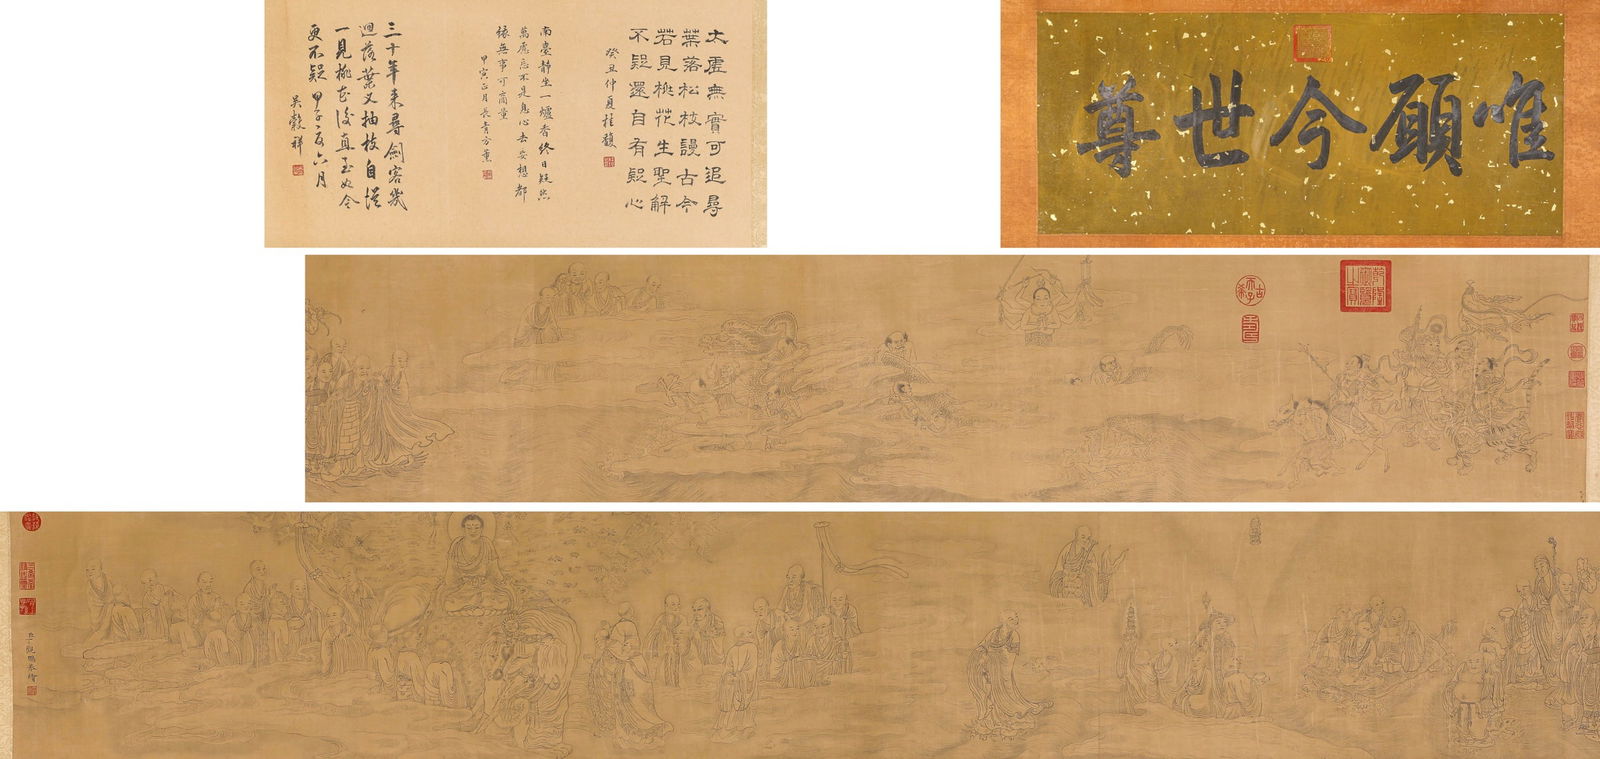 唯願今世尊
太虛無實可追尋
葉落松枝謾古今
若見桃花生聖解
不疑還自有疑心
癸丑仲夏桂馥
南臺靜坐一爐香終日凝然
萬慮忘不是息心去妄想都
緣無事可商量
甲寅正月長青方薰
三十年來尋劍客幾
迴落葉又抽枝自從
一見桃花後直至如今
更不疑 甲子六月
吳穀祥
乾隆御覽之寶
古希天子
臣丁觀鵬恭繪